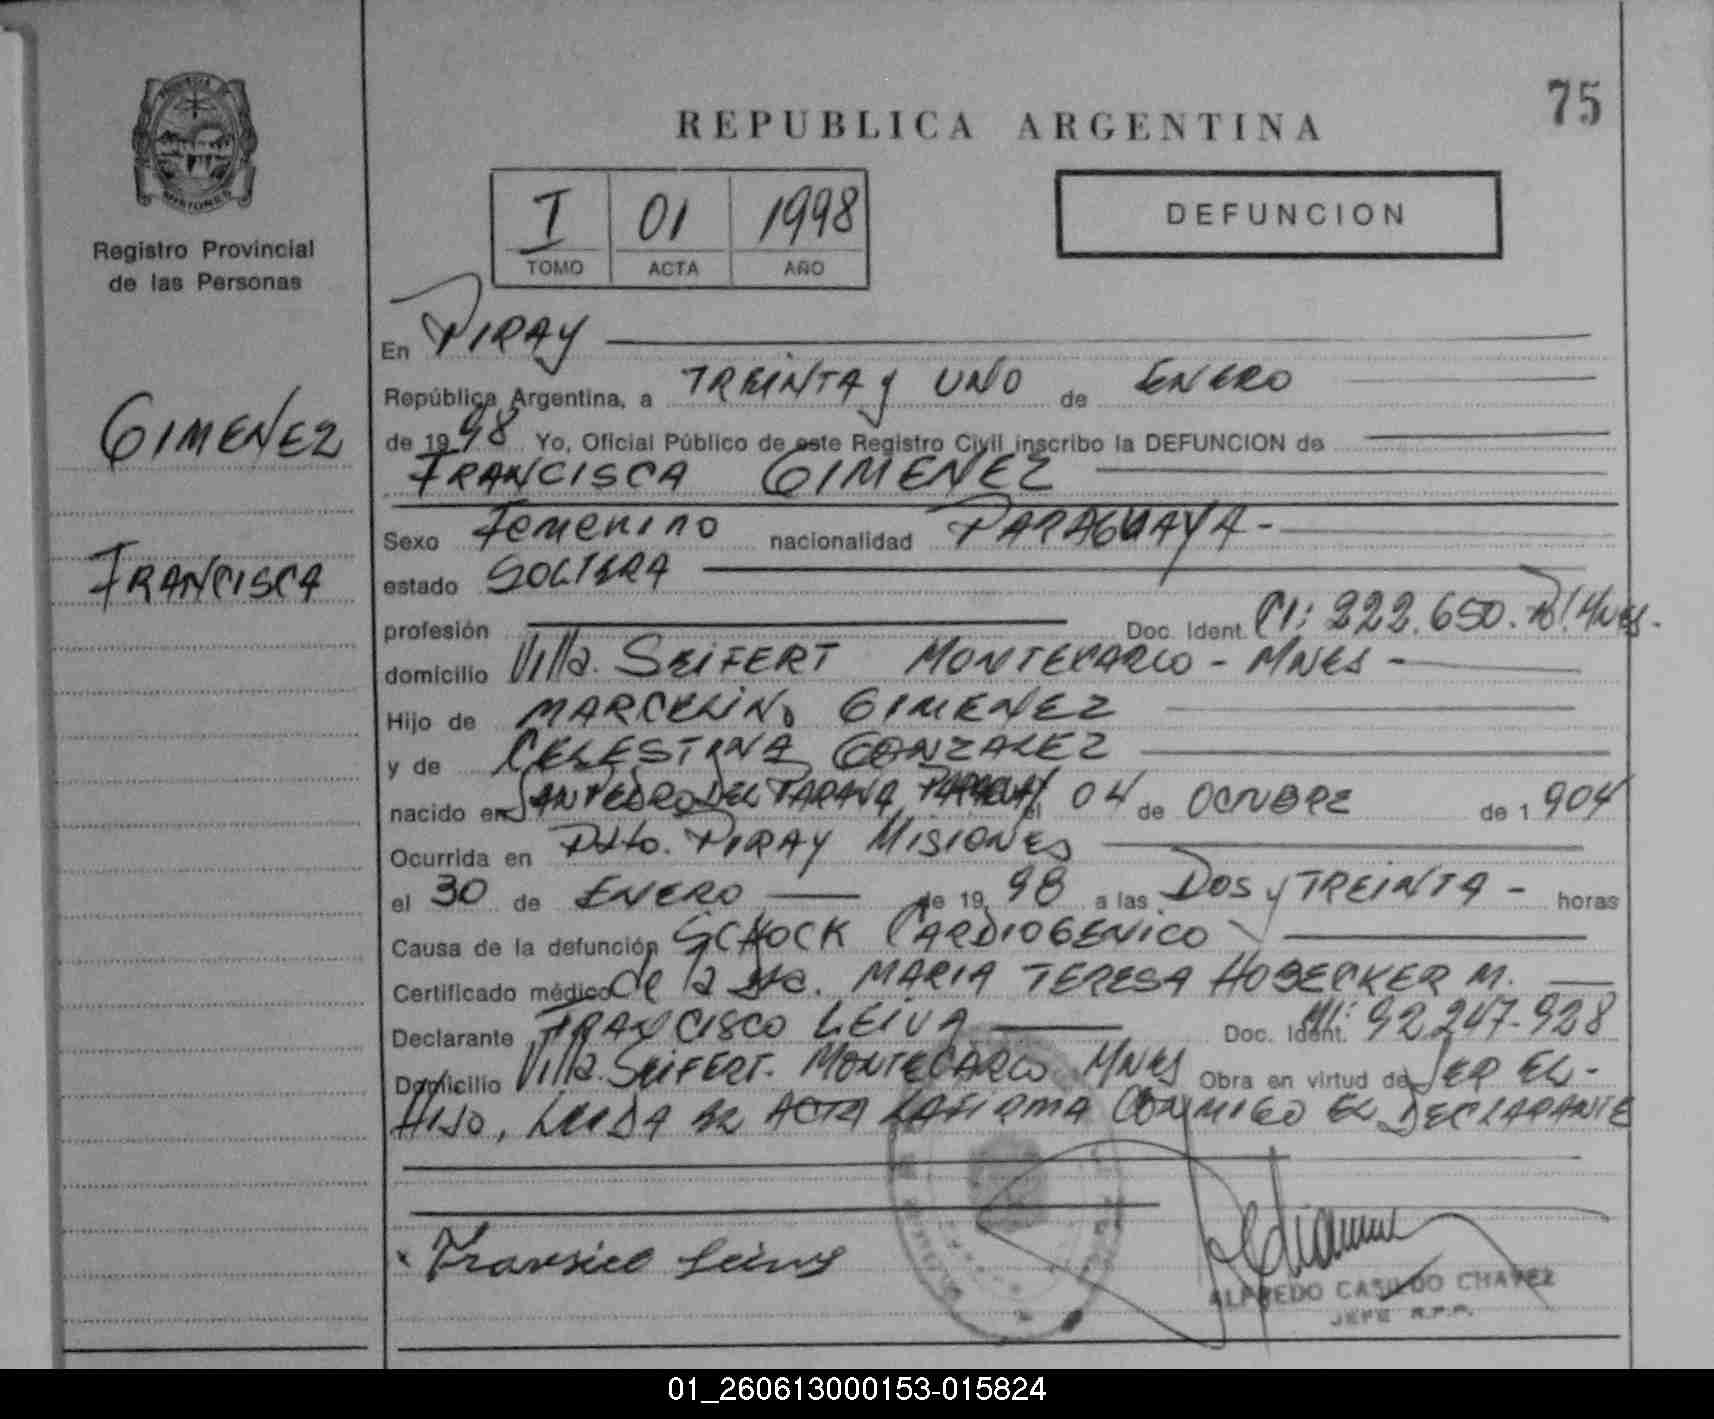 75
REPUBLICA ARGENTINA
I 01 1998
TOMO ACTA AÑO
DEFUNCION
Registro Provincial
de las Personas
GIMENEZ
FRANCISCA
En PIRAY
República Argentina, a TREINTA y UNO de ENERO
de 1998 Yo, Oficial Público de este Registro Civil inscribo la DEFUNCION de
FRANCISCA GIMENEZ
Sexo Femenino nacionalidad PARAGUAYA -
estado SOLTERA
profesión Doc. Ident. CI: 222.650.
domicilio Villa. SEIFERT MONTECARLO - MNES -
Hijo de MARCELINO GIMENEZ
y de CELESTINA GONZALEZ
nacido en SAN PEDRO DEL PARANA, PARAGUAY el 04 de OCTUBRE de 1904
Ocurrida en Pto. PIRAY MISIONES
el 30 de ENERO de 1998 a las DOS y TREINTA - horas
Causa de la defunción SCHOCK CARDIOGENICO
Certificado médico de la Dra. MARIA TERESA HOBECKER M.
Declarante FRANCISCO LEIVA Doc. Ident. MI: 92.247.928
Domicilio Villa. SEIFERT. MONTECARLO MNES Obra en virtud de SER EL-
HIJO, LEIDA EL ACTA LA FIRMA CONMIGO EL DECLARANTE
ALFREDO CASILDO CHAVEZ
JEFE R.P.P.
01_260613000153-015824